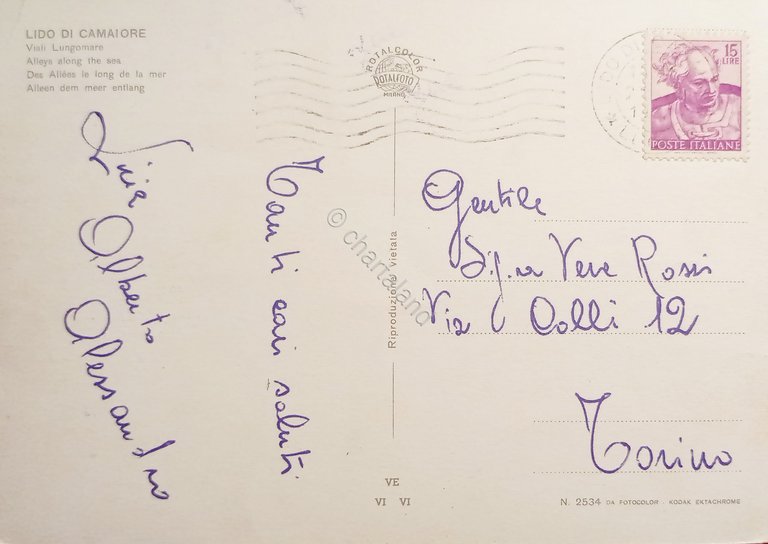 LIDO DI CAMAIORE
Viali Lungomare
Alleys along the sea
Des Allées le long de la mer
Alleen dem meer entlang
ROTALCOLOR
ROTALFOTO
MILANO
15
LIRE
POSTE ITALIANE
Tanti cari saluti.
Alberto
Alessandro
© chartaland
Riproduzione Vietata
Gentile
Sig.ra Vera Rossi
Via Colli 12
Torino
VE
VI VI
N. 2534 DA FOTOCOLOR - KODAK EKTACHROME